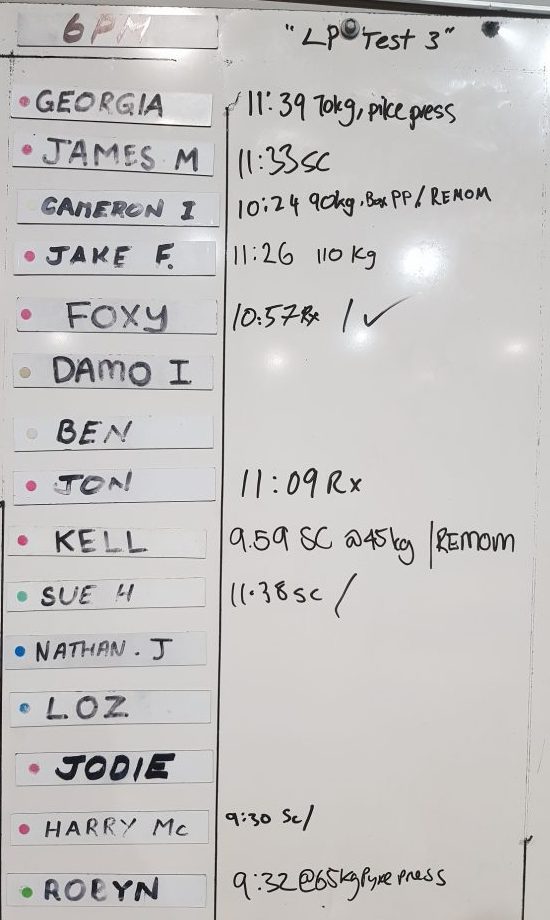 6PM "LP Test 3"
GEORGIA 11:39 70kg, pike press
JAMES M 11:33 SC
CAMERON I 10:24 90kg. Box PP / REMOM
JAKE F. 11:26 110 Kg
FOXY 10:57 Rx / ✓
DAMO I
BEN
JON 11:09 Rx
KELL 9.59 SC @45kg | REMOM
SUE H 11.38 sc /
NATHAN. J
LOZ
JODIE
HARRY Mc 9:30 Sc/
ROBYN 9:32 @65kg Pyke press